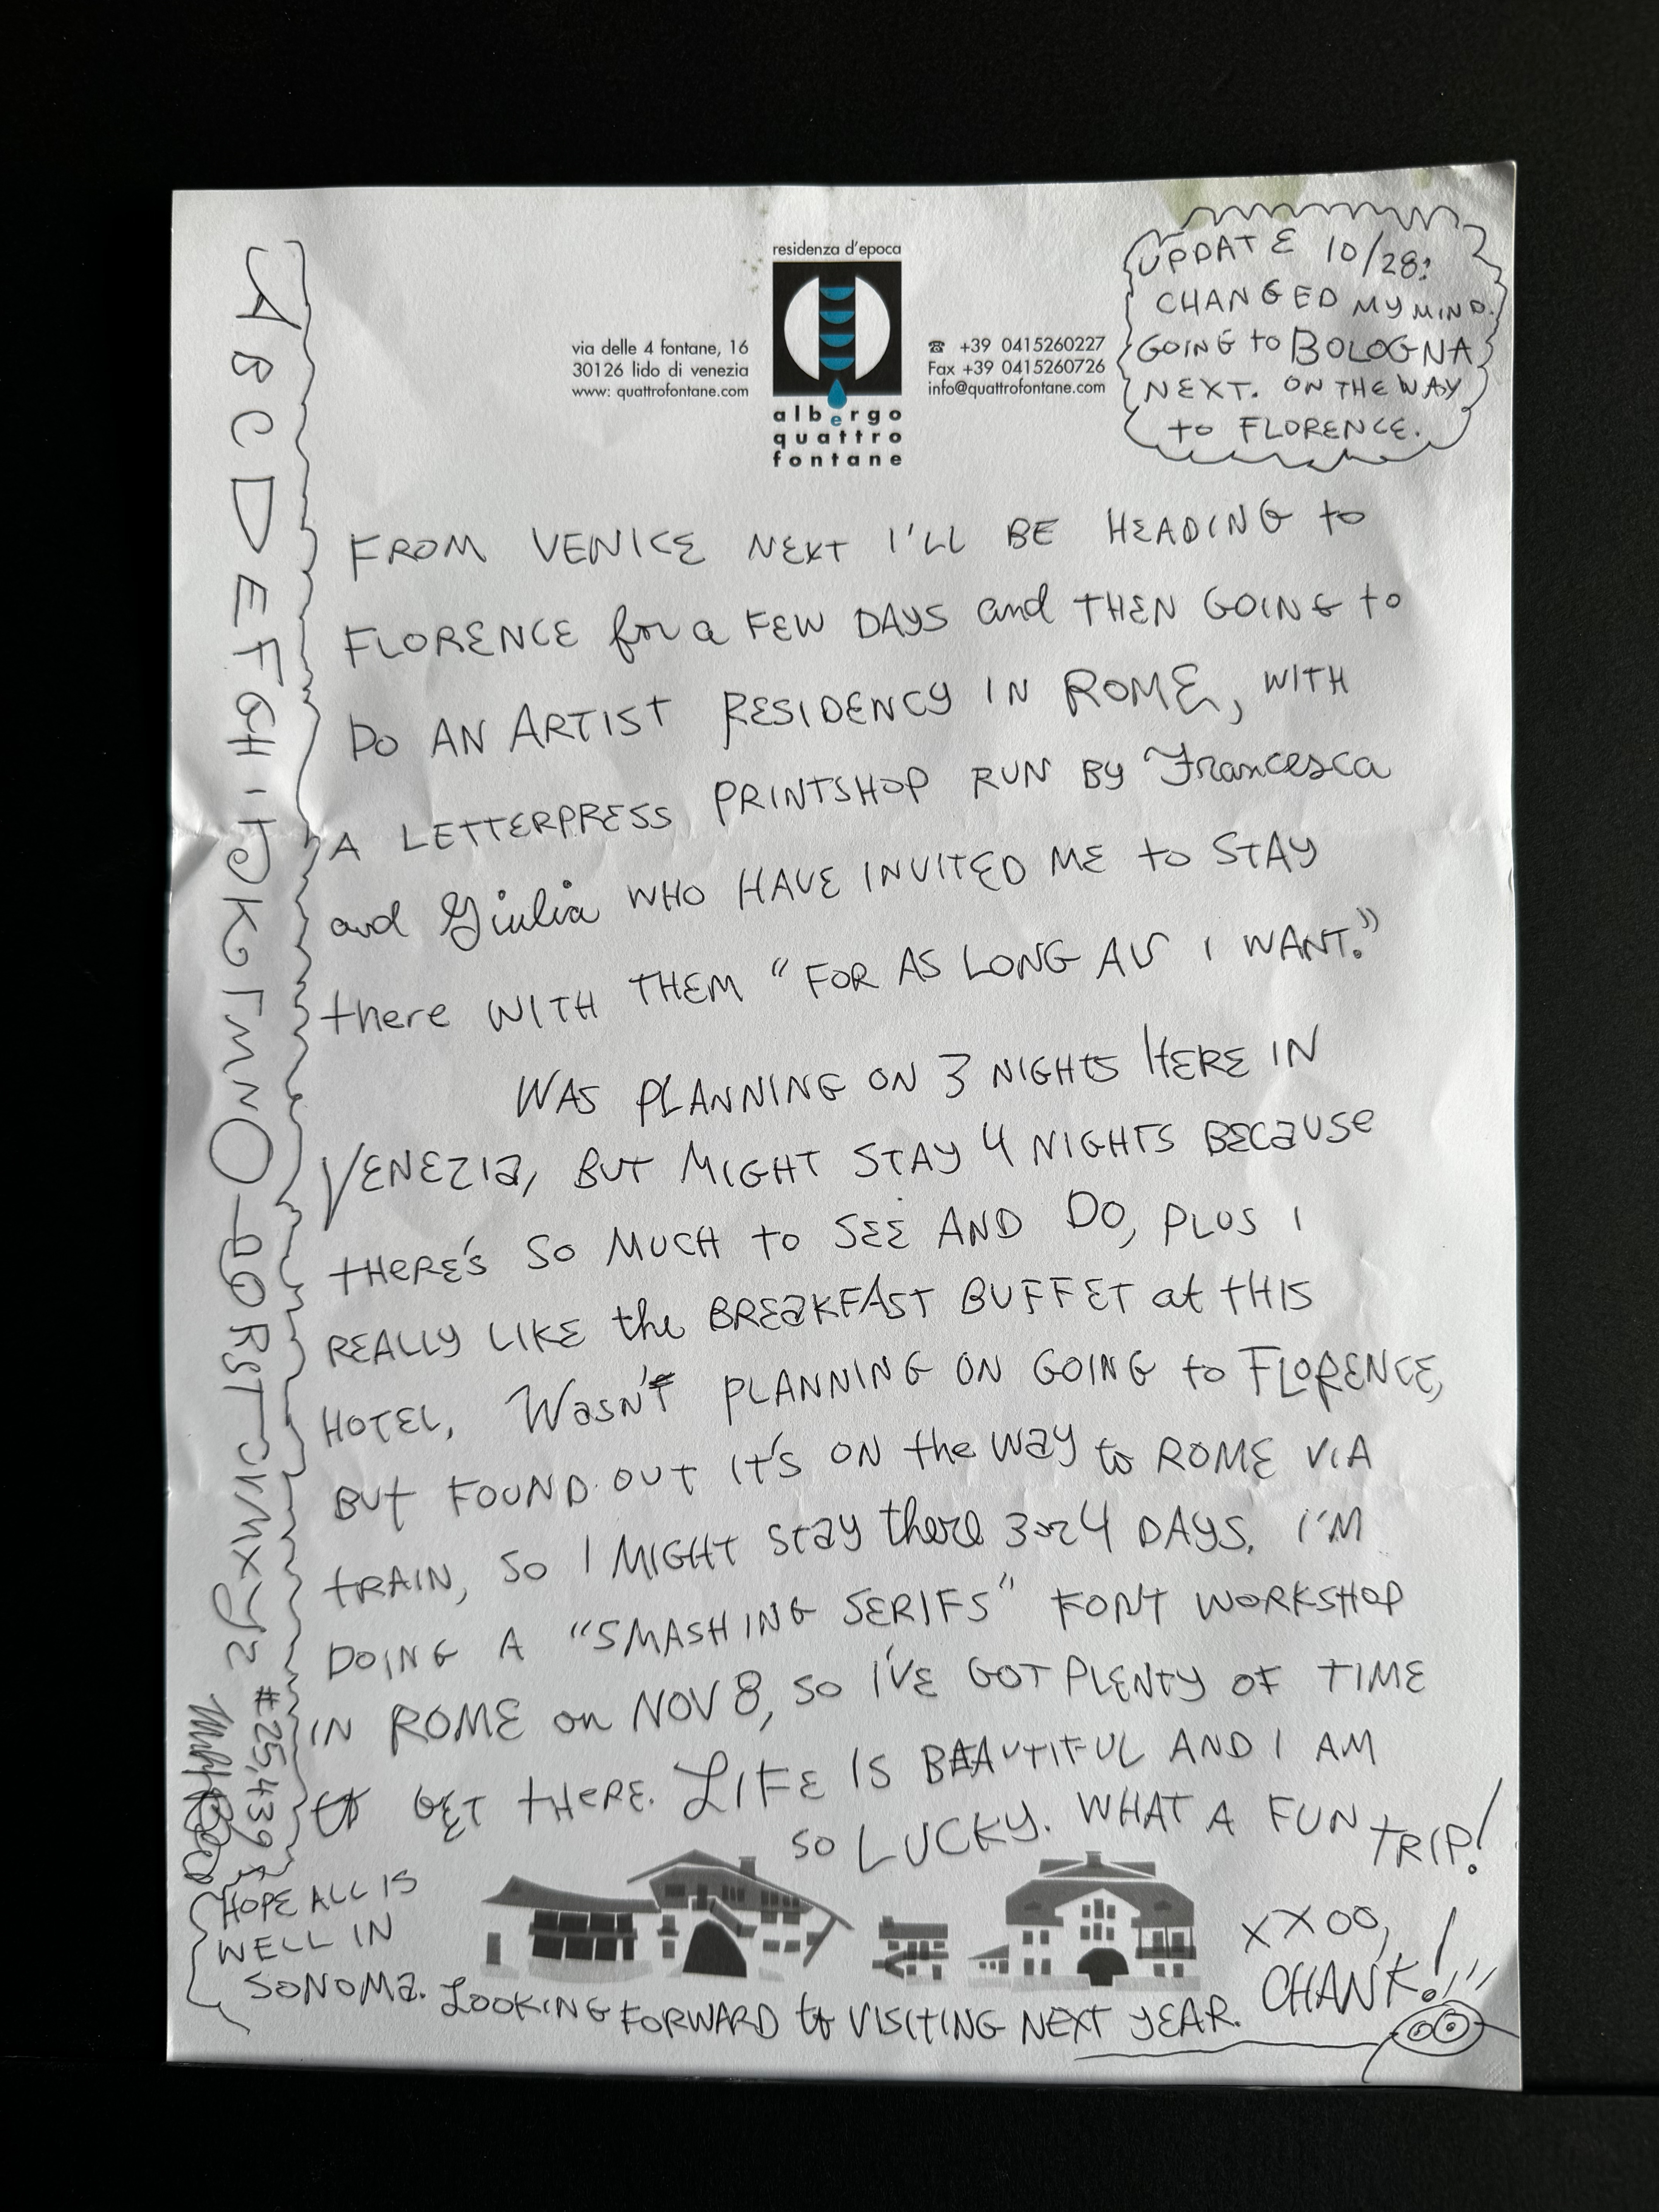 residenza d'epoca
via delle 4 fontane, 16
30126 lido di venezia
www: quattrofontane.com
albergo
quattro
fontane
☎ +39 0415260227
Fax +39 0415260726
info@quattrofontane.com
UPDATE 10/28:
CHANGED MY MIND.
GOING to BOLOGNA
NEXT. ON THE WAY
to FLORENCE.
FROM VENICE NEXT I'LL BE HEADING to
FLORENCE for a FEW DAYS and THEN GOING to
DO AN ARTIST RESIDENCY IN ROME, WITH
A LETTERPRESS PRINTSHOP RUN BY Francesca
and Giulia WHO HAVE INVITED ME to STAY
there WITH THEM "FOR AS LONG AS I WANT."
WAS PLANNING ON 3 NIGHTS HERE IN
VENEZIA, BUT MIGHT STAY 4 NIGHTS BECAUSE
tHERE'S SO MUCH to SEE AND DO, PLUS I
REALLY LIKE the BREAKFAST BUFFET at tHIS
HOTEL. Wasn't PLANNING ON GOING to FLORENCE,
BUt FOUND OUT IT'S ON the WAY to ROME VIA
tRAIN, SO I MIGHT Stay there 3 or 4 DAYS. I'M
DOING A "SMASHING SERIFS" FONT WORKSHOP
IN ROME on NOV 8, SO I'VE GOT PLENTY OF TIME
to GET tHERE. LIFE IS BEAUTIFUL AND I AM
SO LUCKY. WHAT A FUN TRIP!
XXOO,
CHANK!
A B C D E F G H I J K L M N O P Q R S T U V W X Y Z
#25,439
HOPE ALL IS
WELL IN
SONOMa. LOOKING FORWARD to VISITING NEXT YEAR.